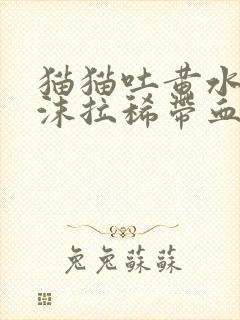 猫猫吐黄水
沫拉稀带血
兔兔蘇蘇